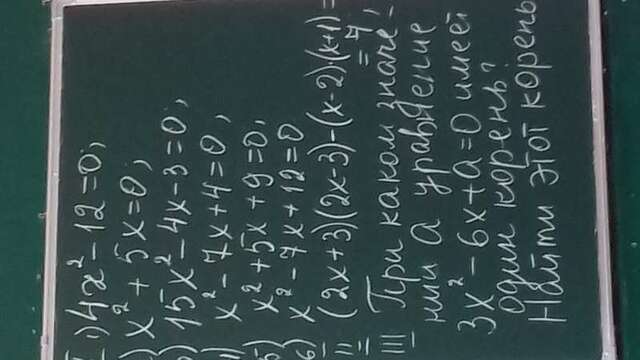 I 1) 4x² - 12 = 0;
) x² + 5x = 0;
) 15x² - 4x - 3 = 0;
) x² - 7x + 4 = 0;
5) x² + 5x + 9 = 0;
6) x² - 7x + 12 = 0
II (2x + 3)(2x - 3) - (x - 2)·(x + 1) =
= 7;
III При каком значе-
нии a уравнение
3x² - 6x + a = 0 имеет
один корень?
Найти этот корень